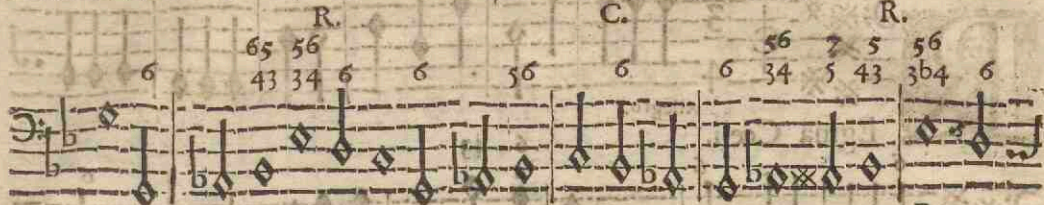 R. C. R.
65 56 56 7 5 56
6 43 34 6 6 56 6 6 34 5 43 3b4 6